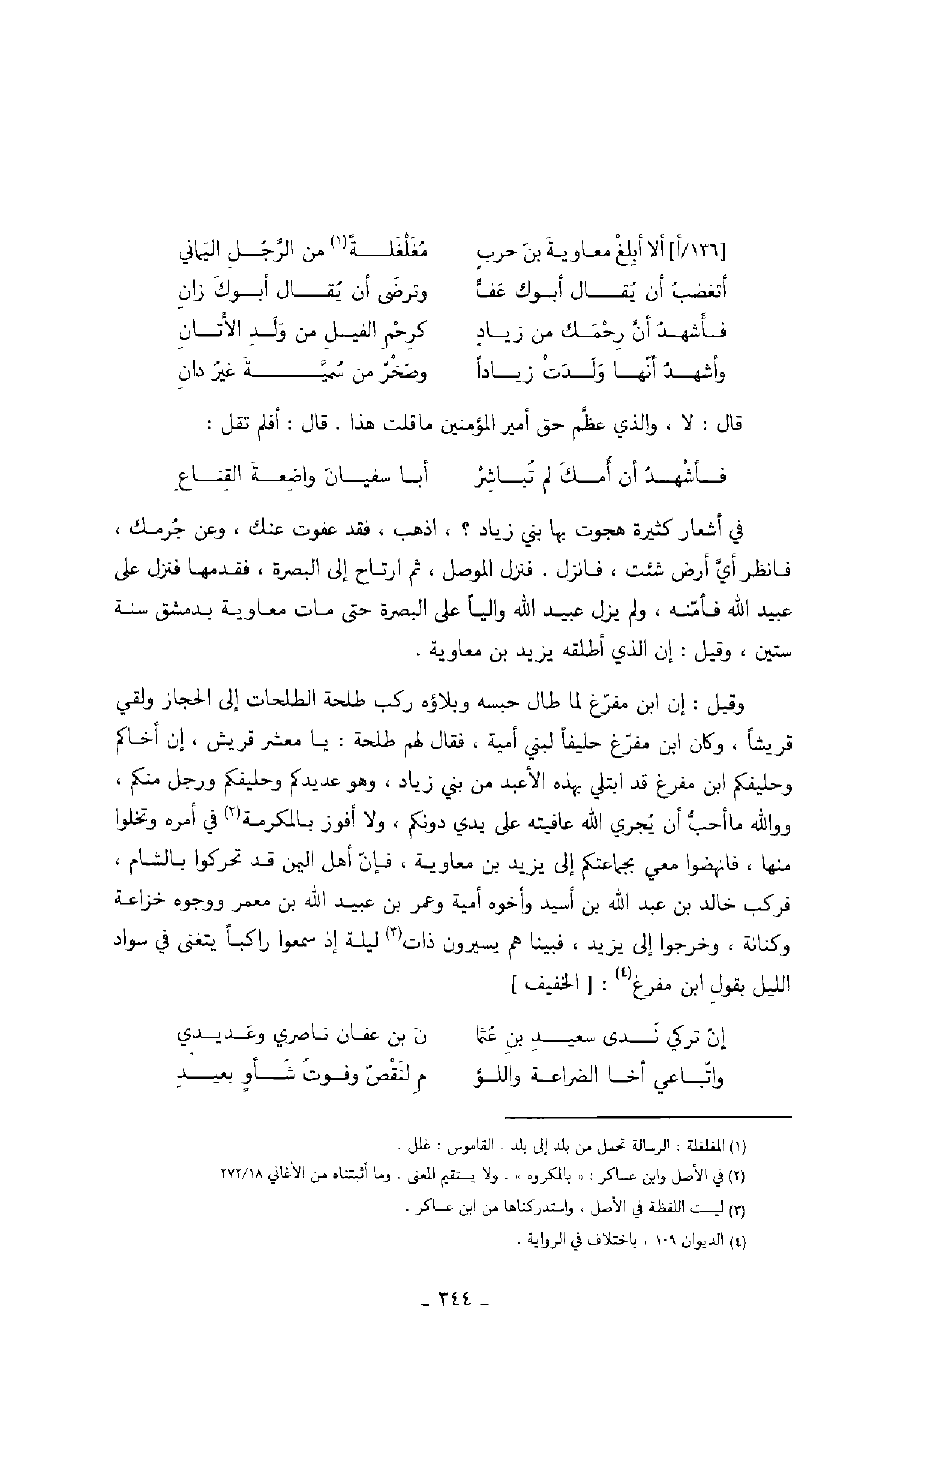 [١٣٦/أ] ألا أبلغْ معاويةَ بنَ حربٍ مُغَلْغَلةً(١) من الرَّجُلِ اليَماني
أتغضبُ أن يُقال أبوك عَفٌّ وترضَى أن يُقال أبوكَ زانِ
فأشهدُ أنَّ رِحْمَك من زيادٍ كرِحْمِ الفيلِ من وَلَدِ الأَتانِ
وأشهدُ أنّها وَلَدَتْ زياداً وصَخْرٌ من سُميَّةَ غيرُ دانِ
قال : لا ، والذي عظّم حق أمير المؤمنين ماقلت هذا . قال : أفلم تقل :
فأشْهدُ أن أمكَ لم تُباشِرْ أبا سفيانَ واضِعةَ القِناعِ
في أشعار كثيرة هجوت بها بني زياد ؟ ، اذهب ، فقد عفوت عنك ، وعن جُرمك ،
فانظر أيَّ أرض شئت ، فانزل . فنزل الموصل ، ثم ارتاح إلى البصرة ، فقدمها فنزل على
عبيد الله فأمّنه ، ولم يزل عبيد الله والياً على البصرة حتى مات معاوية بدمشق سنة
ستين ، وقيل : إن الذي أطلقه يزيد بن معاوية .
وقيل : إن ابن مفرّغ لما طال حبسه وبلاؤه ركب طلحة الطلحات إلى الحجاز ولقي
قريشاً ، وكان ابن مفرّغ حليفاً لبني أمية ، فقال لهم طلحة : يا معشر قريش ، إن أخاكم
وحليفكم ابن مفرغ قد ابتلي بهذه الأعبد من بني زياد ، وهو عديدكم وحليفكم ورجل منكم ،
ووالله ماأحبُّ أن يُجري الله عافيته على يدي دونكم ، ولا أفوز بالمكرمة(٢) في أمره وتخلوا
منها ، فانهضوا معي بجماعتكم إلى يزيد بن معاوية ، فإنّ أهل اليمن قد تحركوا بالشام ،
فركب خالد بن عبد الله بن أسيد وأخوه أمية وعمر بن عبيد الله بن معمر ووجوه خزاعة
وكنانة ، وخرجوا إلى يزيد ، فبينا هم يسيرون ذات(٣) ليلة إذ سمعوا راكباً يتغنى في سواد
الليل بقول ابن مفرغ(٤) : [ الخفيف ]
إنّ تركي نَدى سعيدِ بن عُثما نَ بن عفان ناصري وعَديدي
واتّباعي أخا الضراعة واللؤ مِ لنَقْصٌ وفوتُ شَأوٍ بعيدِ
(١) المغلغلة : الرسالة تحمل من بلد إلى بلد . القاموس : غلل .
(٢) في الأصل وابن عساكر : « بالمكروه » . ولا يستقيم المعنى . وما أثبتناه من الأغاني ٢٧٢/١٨
(٣) ليست اللفظة في الأصل ، واستدركناها من ابن عساكر .
(٤) الديوان ١٠٩ ، باختلاف في الرواية .
ـ ٣٤٤ ـ